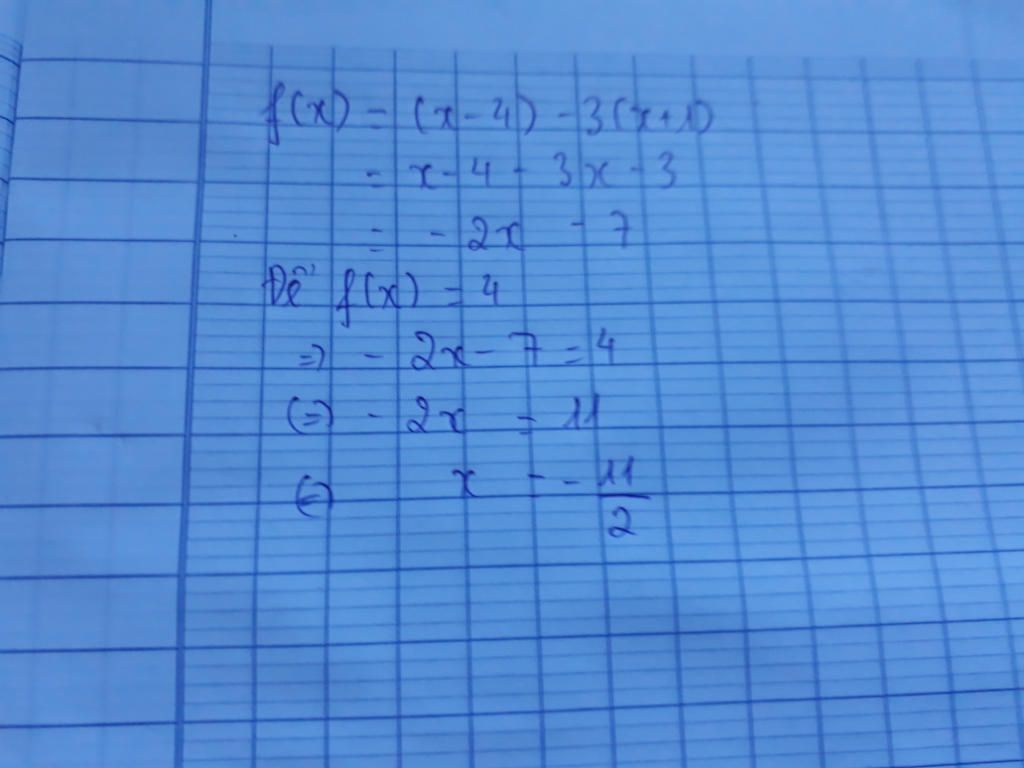 f(x) = (x-4) - 3(x+1)
= x-4 - 3x - 3
= - 2x - 7
Để f(x) = 4
=> - 2x - 7 = 4
(=) - 2x = 11
(=) x = - 11/2